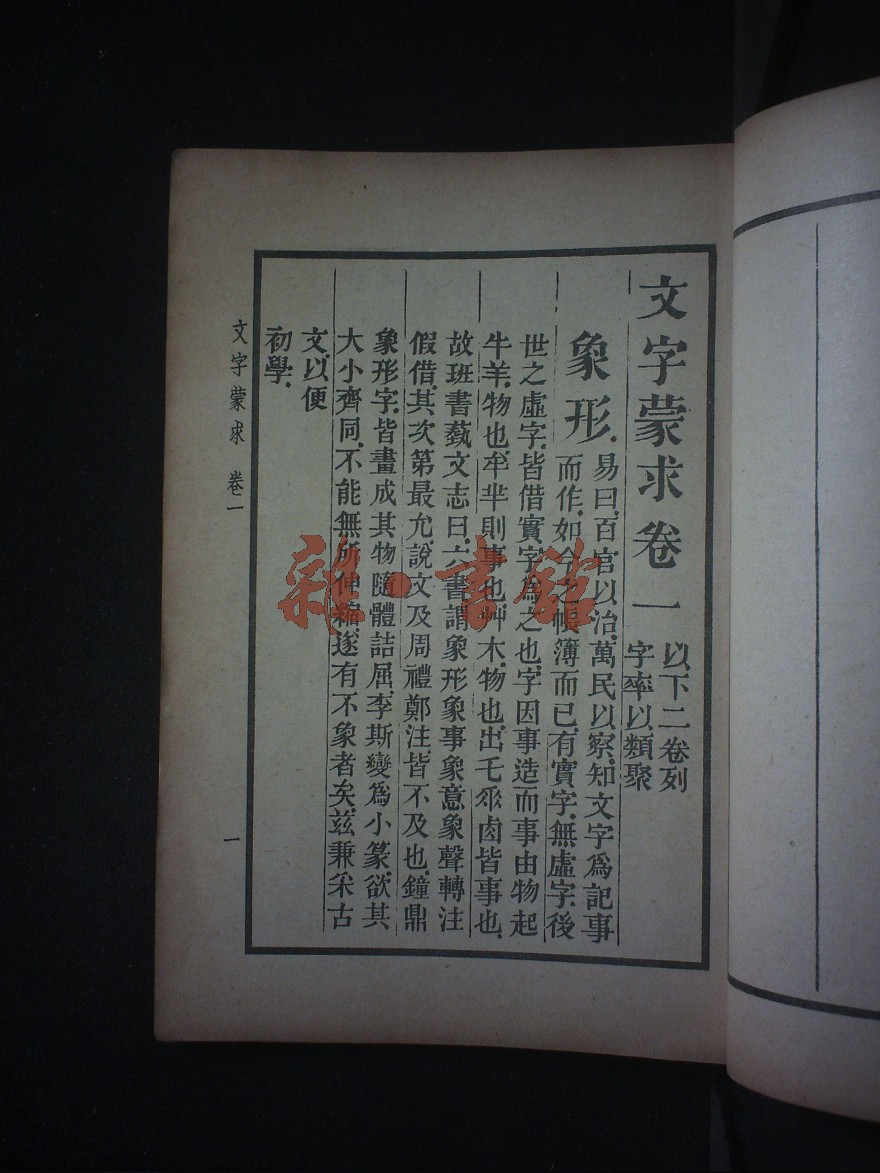 文字蒙求卷一
以下二卷列
字率以類聚
象形.易曰.百官以治.萬民以察.知文字為記事
而作.如今之帳簿而已.有實字.無虛字.後
世之虛字.皆借實字為之也.字因事造而事由物起
牛羊.物也.牟羋則事也.艸木.物也.出乇𠂹卤皆事也.
故班書蓺文志曰.六書謂象形象事象意象聲轉注
假借.其次第最允.說文及周禮鄭注.皆不及也.鐘鼎
象形字.皆畫成其物隨體詰屈.李斯變為小篆.欲其
大小齊同.不能無所伸縮.遂有不象者矣.茲兼采古
文.以便
初學.
文字蒙求 卷一
一
雜·書館